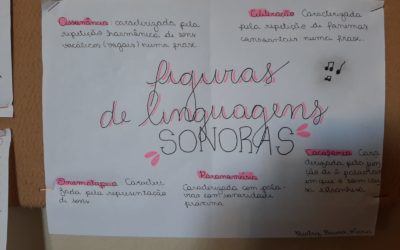 Assonância caracterizada pela
repetição harmônica de sons
vocálicos (vogais) numa frase.
Aliteração Caracterizada
pela repetição de fonemas
consonantais numa frase.
figuras
de linguagens
SONORAS
Onomatopeia Caracteri-
zada pela representação
de sons
Paronomásia
Caracterizada com pala-
vras com sonoridade
próxima
Cacofonia Cara
cterizada pela jun
ção de 2 palavras
em que o som fica